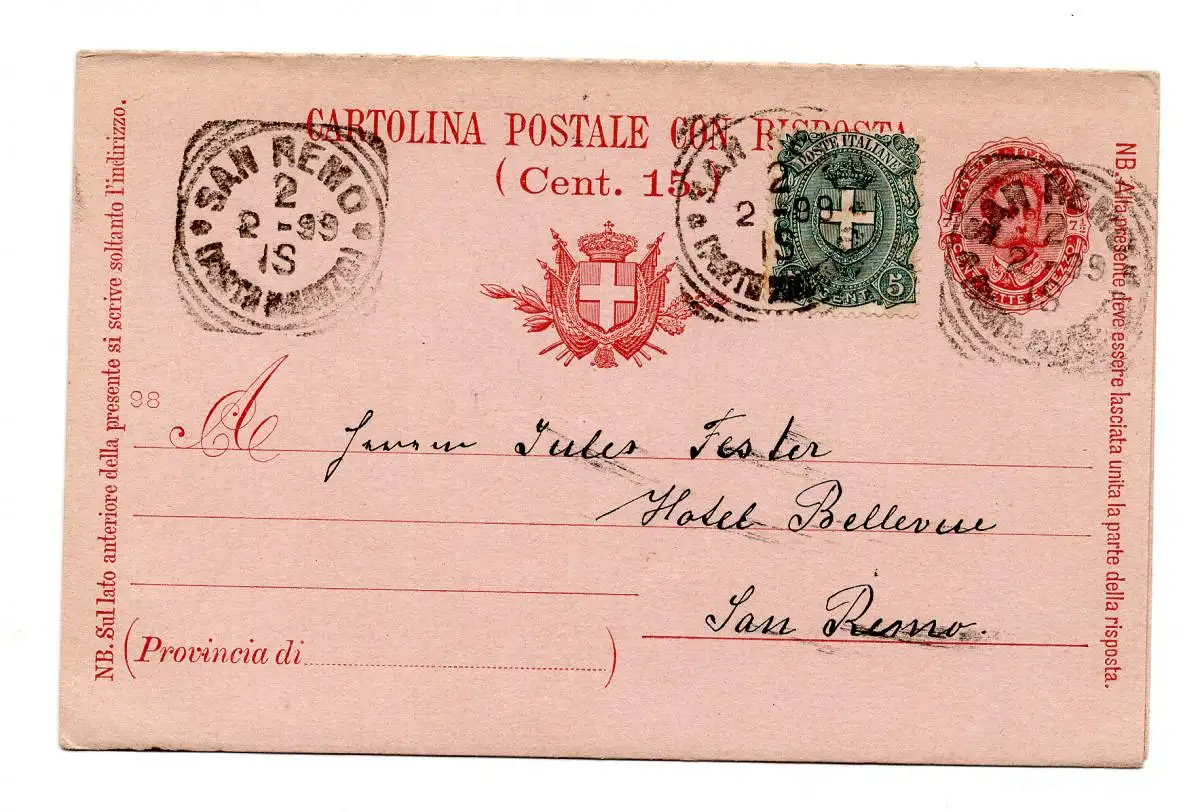 CARTOLINA POSTALE CON RISPOSTA
(Cent. 15.)
SAN REMO
2
2-99
1S
(PORTO MAURIZIO)
SAN
2
2-99
1S
(PORTO
POSTE ITALIANE
5
CENT
5
SAN REMO
2
2 99
NB. Sul lato anteriore della presente si scrive soltanto l'indirizzo.
NB. Alla presente deve essere lasciata unita la parte della risposta.
98
A Herrn Jules Fester
Hotel Bellevue
San Remo.
(Provincia di)